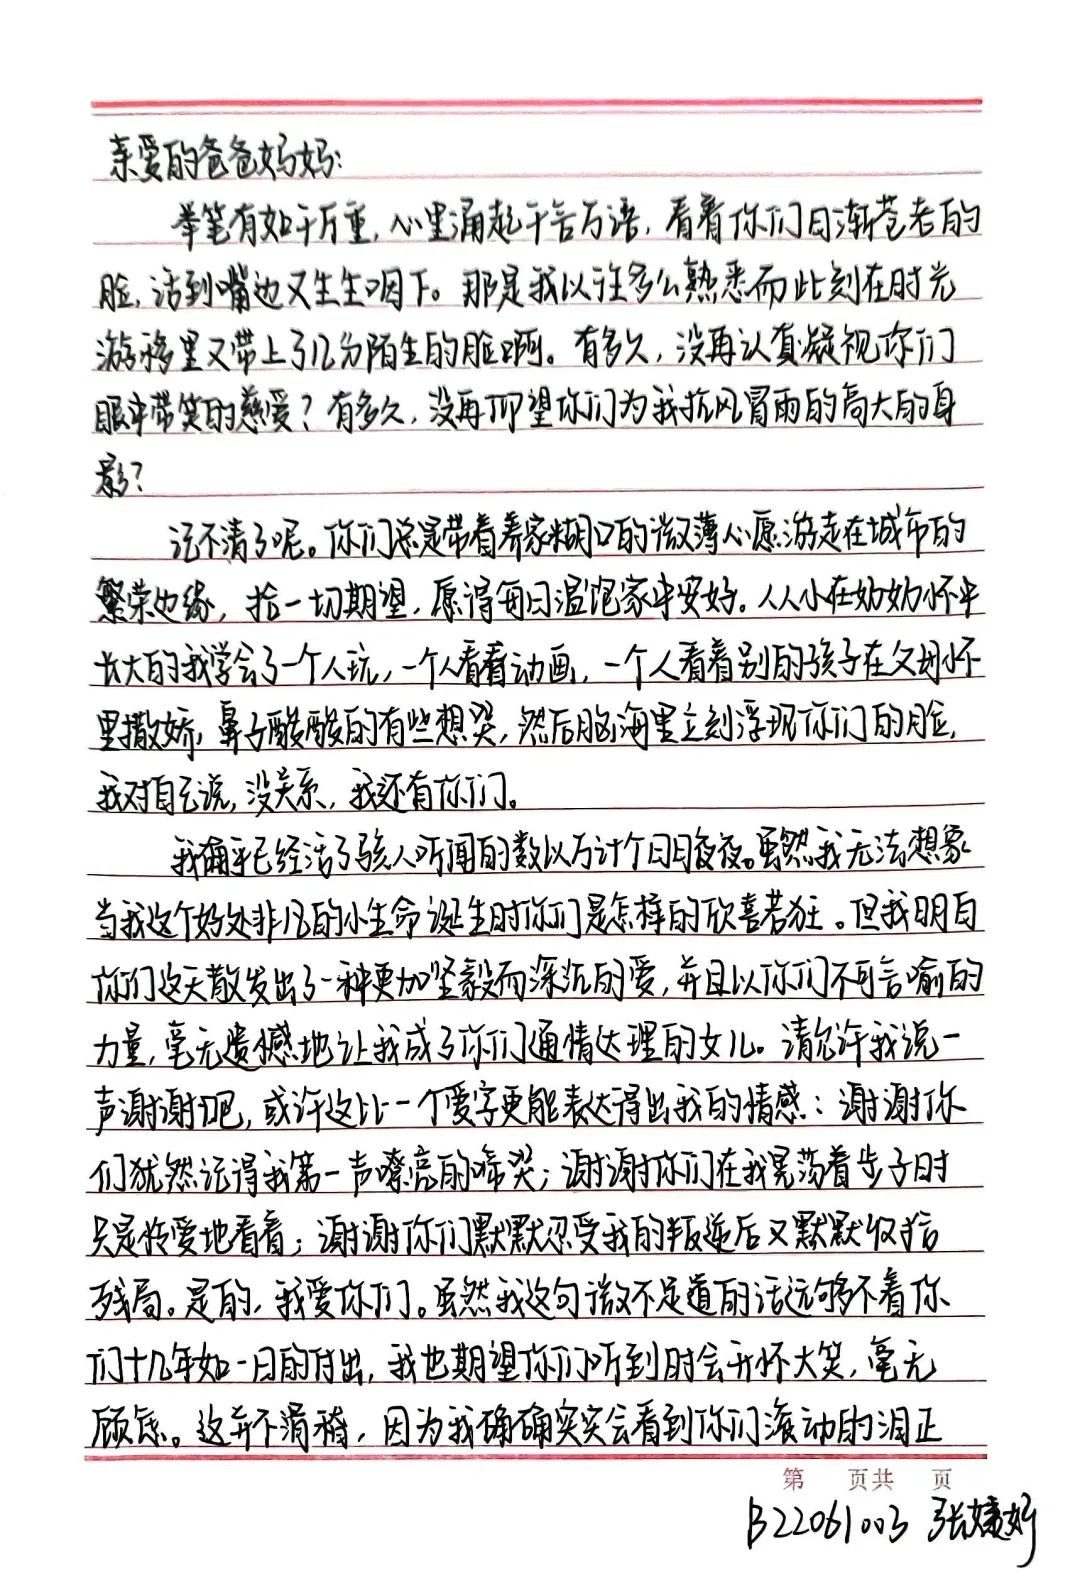 亲爱的爸爸妈妈:
举笔有如千万重,心里涌起千言万语,看着你们日渐苍老的
脸,话到嘴边又生生咽下。那是我以往多么熟悉而此刻在时光
游移里又带上了几分陌生的脸啊。有多久,没再认真凝视你们
眼中带笑的慈爱?有多久,没再仰望你们为我抗风冒雨的高大的身
影?
记不清了呢。你们总是带着养家糊口的微薄心愿游走在城市的
繁荣边缘,拾一切期望,愿得每日温饱家中安好。从小在奶奶怀中
长大的我学会了一个人玩,一个人看着动画,一个人看着别的孩子在父母怀
里撒娇,鼻子酸酸的有些想哭,然后脑海里立刻浮现你们的脸,
我对自己说,没关系,我还有你们。
我确乎已经活了骇人听闻的数以万计个日日夜夜。虽然我无法想象
当我这个好处非凡的小生命诞生时你们是怎样的欣喜若狂。但我明白
你们这天散发出了一种更加坚毅而深沉的爱,并且以你们不可言喻的
力量,毫无遗憾地让我成了你们通情达理的女儿。请允许我说一
声谢谢吧,或许这比一个爱字更能表达得出我的情感:谢谢你
们犹然记得我第一声嘹亮的啼哭;谢谢你们在我晃荡着步子时
只是怜爱地看着;谢谢你们默默忍受我的叛逆后又默默收拾
残局。是的,我爱你们。虽然我这句微不足道的话远够不着你
们十几年如一日的付出,我也期望你们听到时会开怀大笑,毫无
顾虑。这并不滑稽,因为我确确实实会看到你们滚动的泪正
第 页共 页
B22061003 张婕妤